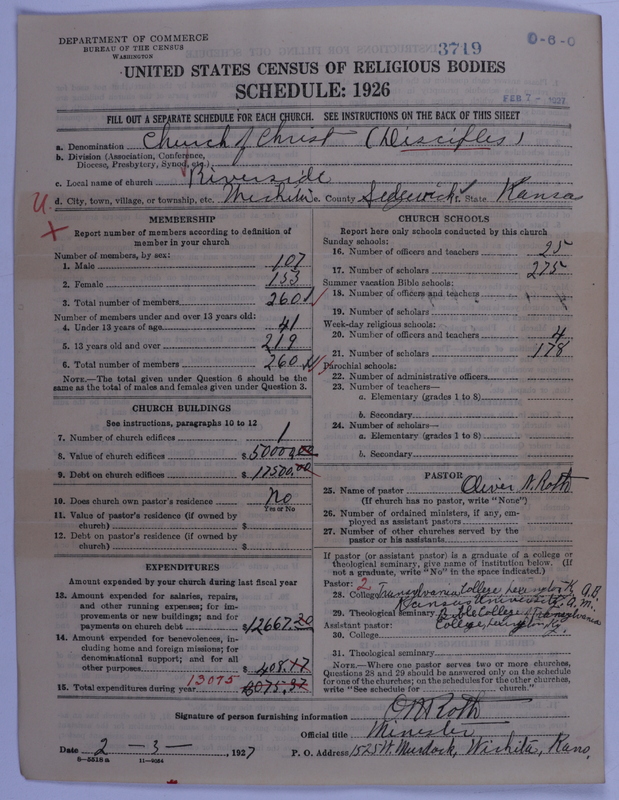 DEPARTMENT OF COMMERCE
BUREAU OF THE CENSUS
WASHINGTON
3719
0-6-0
FEB 7 - 1927
UNITED STATES CENSUS OF RELIGIOUS BODIES
SCHEDULE: 1926
FILL OUT A SEPARATE SCHEDULE FOR EACH CHURCH. SEE INSTRUCTIONS ON THE BACK OF THIS SHEET
a. Denomination Church of Christ (Disciples)
b. Division (Association, Conference,
Diocese, Presbytery, Synod, etc.)
c. Local name of church Riverside
d. City, town, village, or township, etc. Wichita e. County Sedgwick f. State Kansas
U.
MEMBERSHIP
Report number of members according to definition of
member in your church
Number of members, by sex:
1. Male 107
2. Female 153
3. Total number of members 260
Number of members under and over 13 years old:
4. Under 13 years of age 41
5. 13 years old and over 219
6. Total number of members 260
NOTE.—The total given under Question 6 should be
same as the total of males and females given under Question 3.
CHURCH BUILDINGS
See instructions, paragraphs 10 to 12
7. Number of church edifices 1
8. Value of church edifices $50000.00
9. Debt on church edifices $17500.00
10. Does church own pastor's residence No
Yes or No
11. Value of pastor's residence (if owned by
church) $
12. Debt on pastor's residence (if owned by
church) $
EXPENDITURES
Amount expended by your church during last fiscal year
13. Amount expended for salaries, repairs,
and other running expenses; for im-
provements or new buildings; and for
payments on church debt $12667.20
14. Amount expended for benevolences, in-
cluding home and foreign missions; for
denominational support; and for all
other purposes $408.17
13075
15. Total expenditures during year 13075.37
CHURCH SCHOOLS
Report here only schools conducted by this church
Sunday schools:
16. Number of officers and teachers 25
17. Number of scholars 275
Summer vacation Bible schools:
18. Number of officers and teachers
19. Number of scholars
Week-day religious schools:
20. Number of officers and teachers 4
21. Number of scholars 178
Parochial schools:
22. Number of administrative officers
23. Number of teachers—
a. Elementary (grades 1 to 8)
b. Secondary
24. Number of scholars—
a. Elementary (grades 1 to 8)
b. Secondary
PASTOR
25. Name of pastor Oliver N. Roth
(If church has no pastor, write "None")
26. Number of ordained ministers, if any, em-
ployed as assistant pastors
27. Number of other churches served by the
pastor or his assistants
If pastor (or assistant pastor) is a graduate of a college or
theological seminary, give name of institution below. (If
not a graduate, write "No" in the space indicated.)
Pastor: 2
28. College Transylvania College Lexington K. A.B.
Kansas University K. A.M.
29. Theological seminary Bible College of Transylvania
Assistant pastor: College, Lexington Ky.
30. College
31. Theological seminary
NOTE.—Where one pastor serves two or more churches,
Questions 28 and 29 should be answered only on the schedule
for one of the churches; on the schedules for the other churches,
write "See schedule for church."
Signature of person furnishing information O N Roth
Official title Minister
Date 2 - 3 - , 1927 P. O. Address 1525 W. Murdock, Wichita, Kans.
8-5518a 11-9054